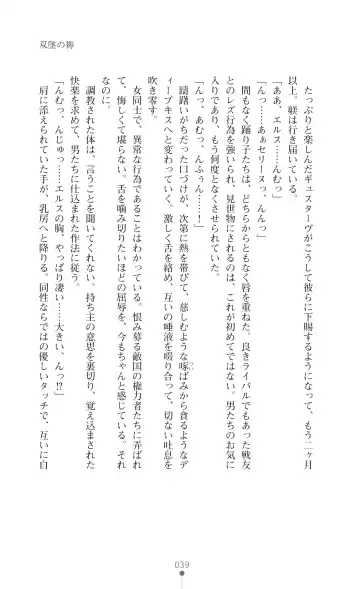 双墜の褥
　たっぷりと楽しんだギュスターヴがこうして彼らに下賜するようになって、もう二ヶ月
以上。躾は行き届いている。
「ああ、エルス……んむっ」
「んっ……あぁセリーヌ、んんっ」
　間もなく踊り子たちは、どちらからともなく唇を重ねた。良きライバルでもあった戦友
とのレズ行為を強いられ、見世物にされるのは、これが初めてではない。男たちのお気に
入りであり、もう何度となくさせられていた。
「んっ、あむっ、んふぅん……」
　躊躇いがちだった口づけが、次第に熱を帯びて、慈しむような啄ばみから貪るようなデ
ィープキスへと変わっていく。激しく舌を絡め、互いの唾液を啜り合って、切ない吐息を
吹き零す。
　女同士で、異常な行為であることはわかっている。恨み募る敵国の権力者たちに弄ばれ
て、悔しくて堪らない。舌を噛み切りたいほどの屈辱を、今もちゃんと感じている。それ
なのに。
　調教された体は、言うことを聞いてくれない。持ち主の意思を裏切り、覚え込まされた
快楽を求めて、男たちに仕込まれた作法に従う。
「んむっ、んじゅっ……エルスの胸、やっぱり凄い……大きい、んっ!?」
　肩に添えられていた手が、乳房へと降りる。同性ならではの優しいタッチで、互いに自
039